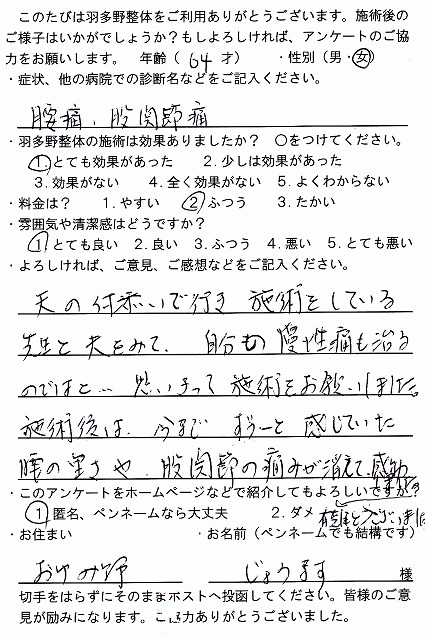 このたびは羽多野整体をご利用ありがとうございます。施術後の
ご様子はいかがでしょうか？もしよろしければ、アンケートのご協
力をお願いします。 年齢（ 64 才） ・性別（男・女）
・症状、他の病院での診断名などをご記入ください。
腰痛、股関節痛
・羽多野整体の施術は効果ありましたか？ ○をつけてください。
1. とても効果があった 2. 少しは効果があった
3. 効果がない 4. 全く効果がない 5. よくわからない
・料金は？ 1. やすい 2. ふつう 3. たかい
・雰囲気や清潔感はどうですか？
1. とても良い 2. 良い 3. ふつう 4. 悪い 5. とても悪い
・よろしければ、ご意見、ご感想などをご記入ください。
夫の付添いで行き 施術をしている
先生と夫をみて、自分の慢性痛も治る
のではと… 思いきって施術をお願いしました。
施術後は、今まで ずうーと 感じていた
腰の重さや、股関節の痛みが消えて、感動
・このアンケートをホームページなどで紹介してもよろしいですか？
1. 匿名、ペンネームなら大丈夫 2. ダメ
・お住まい ・お名前（ペンネームでも結構です）
おゆみ野 じょうます 様
切手をはらずにそのままポストへ投函してください。皆様のご意
見が励みになります。ご協力ありがとうございました。